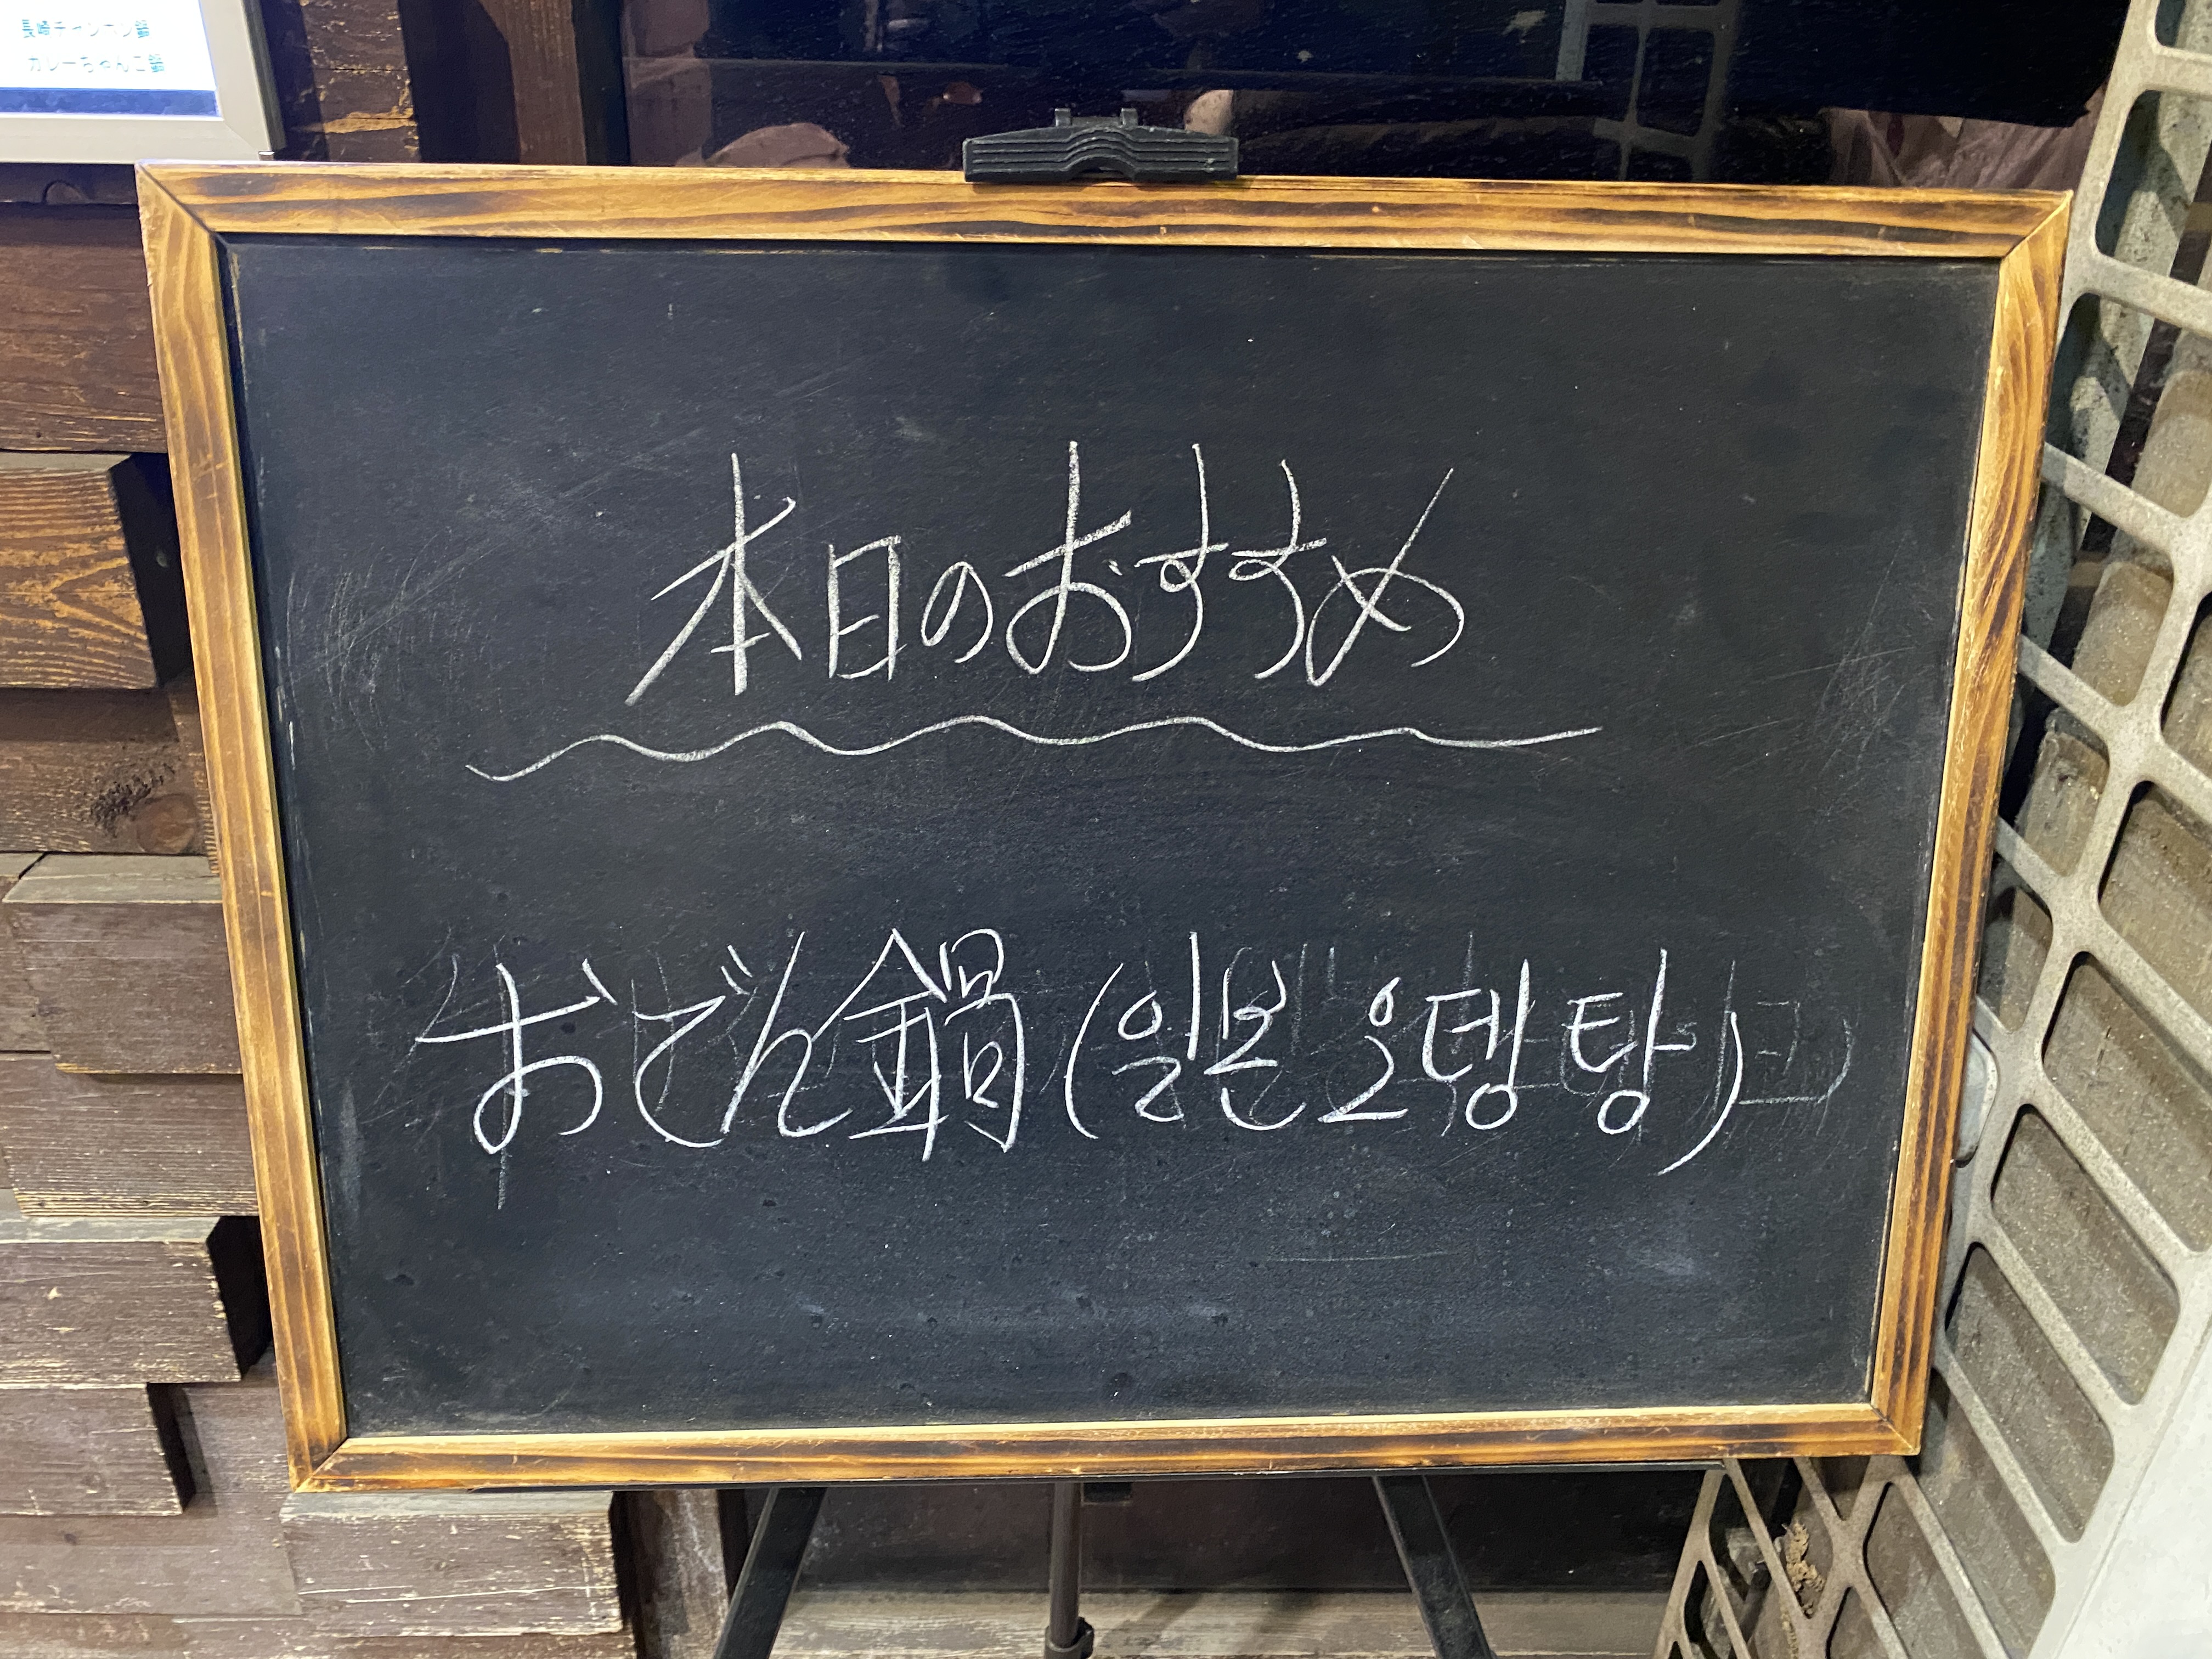 長崎チャンポン鍋
カレーちゃんこ鍋
本日のおすすめ
おでん鍋(일본 오뎅탕)